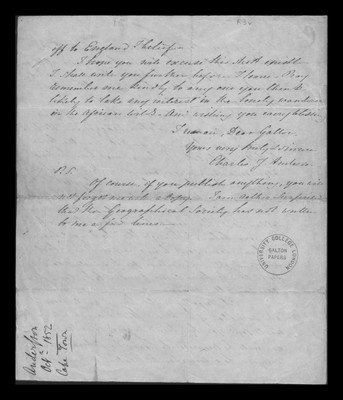 off to England I believe –
I hope you will excuse this
I shall write you further before I leave. Pray
remember me kindly to any one you think
likely to take any interest in the lonely wanderer
in the African wilds. And wishing you every
I remain, Dear Galton
Yours very truly & sincerely
Charles J Andersson
P.S.
Of course, if you publish anything, you will
not forget me with a copy. I am rather surprised
that the Geographical Society has not written
to me a few lines. –
UNIVERSITY COLLEGE LONDON
GALTON
PAPERS
Andersson
Oct 1852
Cape Town